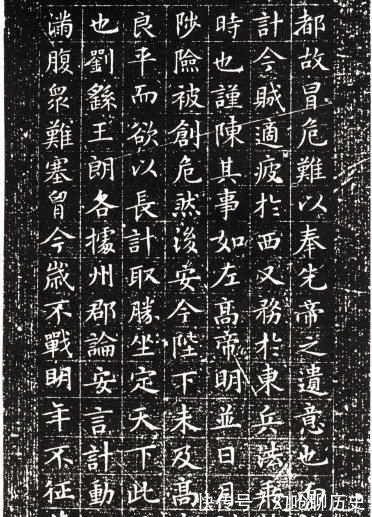 都故冒危難以奉先帝之遺意也
計今賊適疲於西又務於東兵法乘
時也謹陳其事如左高帝明並日月
涉險被創危然後安今陛下未及高
良平而欲以長計取勝坐定天下此
也劉繇王朗各據州郡論安言計動
滿腹衆難塞胷今歲不戰明年不征
快传号/聊历史